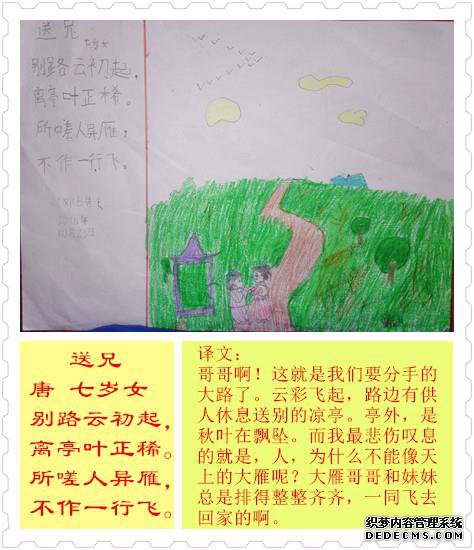 送兄
七岁女
别路云初起，
离亭叶正稀。
所嗟人异雁，
不作一行飞。
送兄
唐 七岁女
别路云初起，
离亭叶正稀。
所嗟人异雁，
不作一行飞。
译文：
哥哥啊！这就是我们要分手的
大路了。云彩飞起，路边有供
人休息送别的凉亭。亭外，是
秋叶在飘坠。而我最悲伤叹息
的就是，人，为什么不能像天
上的大雁呢？大雁哥哥和妹妹
总是排得整整齐齐，一同飞去
回家的啊。
织梦内容管理系统
DEDECMS.COM